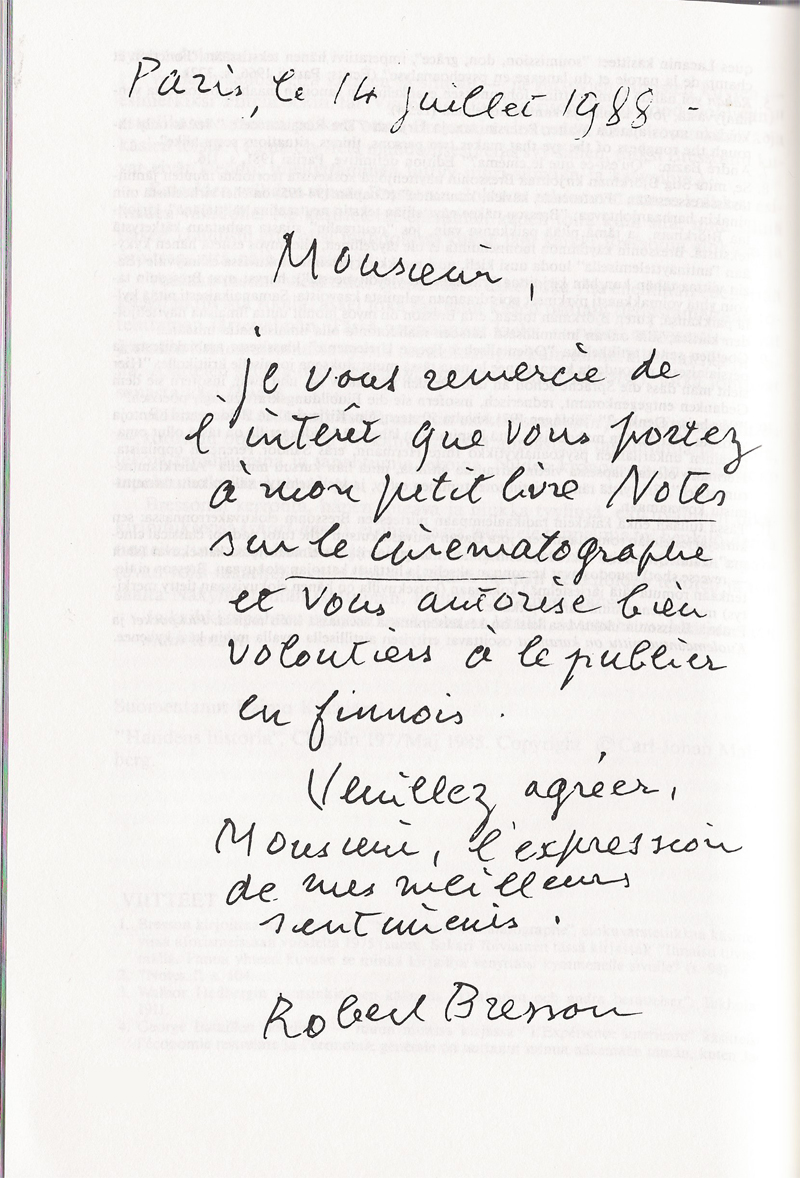 Paris, le 14 juillet 1988 -
Monsieur,
je vous remercie de
l'intérêt que vous portez
à mon petit livre Notes
sur le cinematographe
et vous autorise bien
volontiers à le publier
en finnois.
Veuillez agréer,
Monsieur, l'expression
de mes meilleurs
sentiments.
Robert Bresson